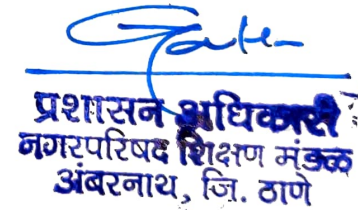 प्रशासन अधिकारी
नगरपरिषद शिक्षण मंडळ
अंबरनाथ, जि. ठाणे